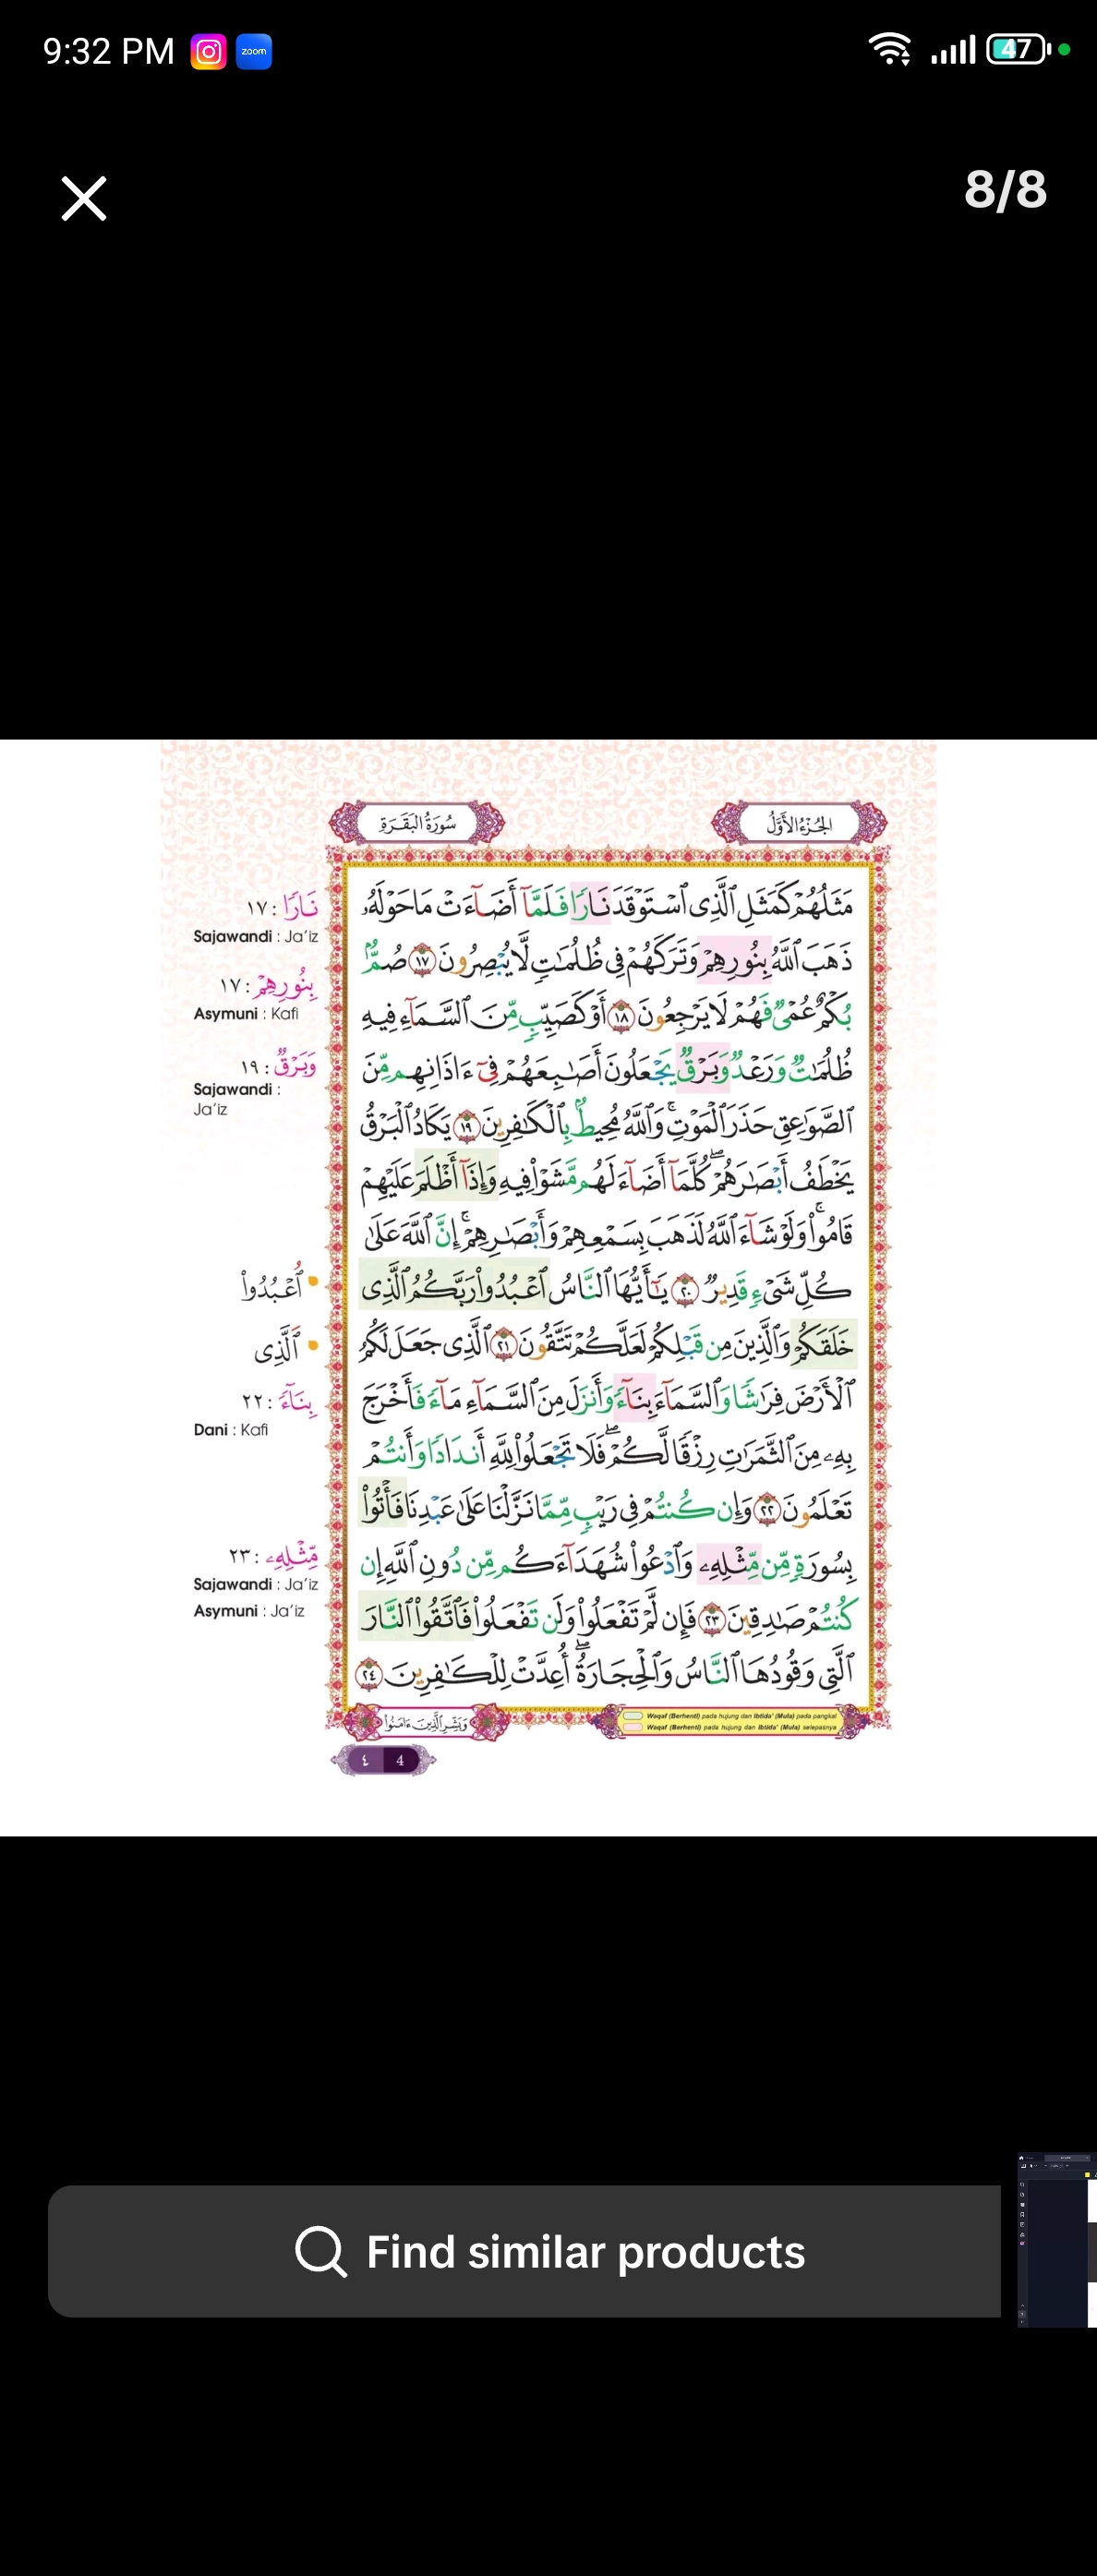 9:32 PM
zoom
47
8/8
سُورَةُ البَقَرَةِ
الجُزْءُ الأَوَّلُ
مَثَلُهُمْ كَمَثَلِ ٱلَّذِى ٱسْتَوْقَدَ نَارًا فَلَمَّآ أَضَآءَتْ مَا حَوْلَهُۥ
ذَهَبَ ٱللَّهُ بِنُورِهِمْ وَتَرَكَهُمْ فِى ظُلُمَٰتٍ لَّا يُبْصِرُونَ ١٧ صُمٌّۢ
بُكْمٌ عُمْىٌ فَهُمْ لَا يَرْجِعُونَ ١٨ أَوْ كَصَيِّبٍ مِّنَ ٱلسَّمَآءِ فِيهِ
ظُلُمَٰتٌ وَرَعْدٌ وَبَرْقٌ يَجْعَلُونَ أَصَٰبِعَهُمْ فِىٓ ءَاذَانِهِم مِّنَ
ٱلصَّوَٰعِقِ حَذَرَ ٱلْمَوْتِ ۚ وَٱللَّهُ مُحِيطٌۢ بِٱلْكَٰفِرِينَ ١٩ يَكَادُ ٱلْبَرْقُ
يَخْطَفُ أَبْصَٰرَهُمْ ۖ كُلَّمَآ أَضَآءَ لَهُم مَّشَوْا۟ فِيهِ وَإِذَآ أَظْلَمَ عَلَيْهِمْ
قَامُوا۟ ۚ وَلَوْ شَآءَ ٱللَّهُ لَذَهَبَ بِسَمْعِهِمْ وَأَبْصَٰرِهِمْ ۚ إِنَّ ٱللَّهَ عَلَىٰ
كُلِّ شَىْءٍ قَدِيرٌ ٢٠ يَٰٓأَيُّهَا ٱلنَّاسُ ٱعْبُدُوا۟ رَبَّكُمُ ٱلَّذِى
خَلَقَكُمْ وَٱلَّذِينَ مِن قَبْلِكُمْ لَعَلَّكُمْ تَتَّقُونَ ٢١ ٱلَّذِى جَعَلَ لَكُمُ
ٱلْأَرْضَ فِرَٰشًا وَٱلسَّمَآءَ بِنَآءً وَأَنزَلَ مِنَ ٱلسَّمَآءِ مَآءً فَأَخْرَجَ
بِهِۦ مِنَ ٱلثَّمَرَٰتِ رِزْقًا لَّكُمْ ۖ فَلَا تَجْعَلُوا۟ لِلَّهِ أَندَادًا وَأَنتُمْ
تَعْلَمُونَ ٢٢ وَإِن كُنتُمْ فِى رَيْبٍ مِّمَّا نَزَّلْنَا عَلَىٰ عَبْدِنَا فَأْتُوا۟
بِسُورَةٍ مِّن مِّثْلِهِۦ وَٱدْعُوا۟ شُهَدَآءَكُم مِّن دُونِ ٱللَّهِ إِن
كُنتُمْ صَٰدِقِينَ ٢٣ فَإِن لَّمْ تَفْعَلُوا۟ وَلَن تَفْعَلُوا۟ فَٱتَّقُوا۟ ٱلنَّارَ
ٱلَّتِى وَقُودُهَا ٱلنَّاسُ وَٱلْحِجَارَةُ ۖ أُعِدَّتْ لِلْكَٰفِرِينَ ٢٤
نَارًا : ١٧
Sajawandi : Ja'iz
بِنُورِهِمْ : ١٧
Asymuni : Kafi
وَبَرْقٌ : ١٩
Sajawandi :
Ja'iz
ٱُعْبُدُوا۟
ٱَلَّذِى
بِنَآءً : ٢٢
Dani : Kafi
مِّثْلِهِۦ : ٢٣
Sajawandi : Ja'iz
Asymuni : Ja'iz
وَبَشِّرِ ٱلَّذِينَ ءَامَنُوا۟
Waqaf (Berhenti) pada hujung dan Ibtida' (Mula) pada pangkal
Waqaf (Berhenti) pada hujung dan Ibtida' (Mula) selepasnya
٤ 4
Find similar products